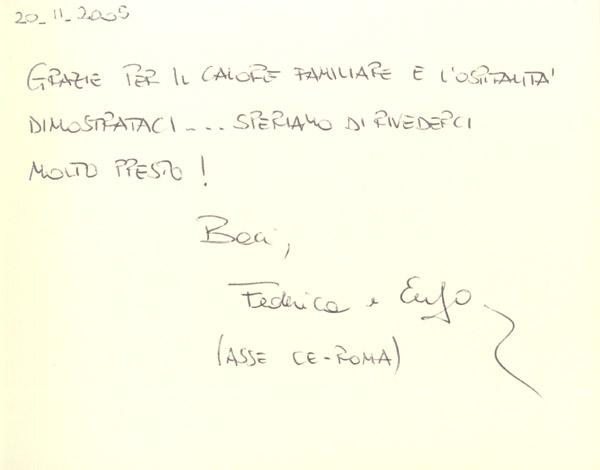 20_11_2005
GRAZIE PER IL CALORE FAMILIARE E L'OSPITALITA'
DIMOSTRATACI... SPERIAMO DI RIVEDERCI
MOLTO PRESTO!
Baci,
Federica e Enzo
(ASSE CE-ROMA)